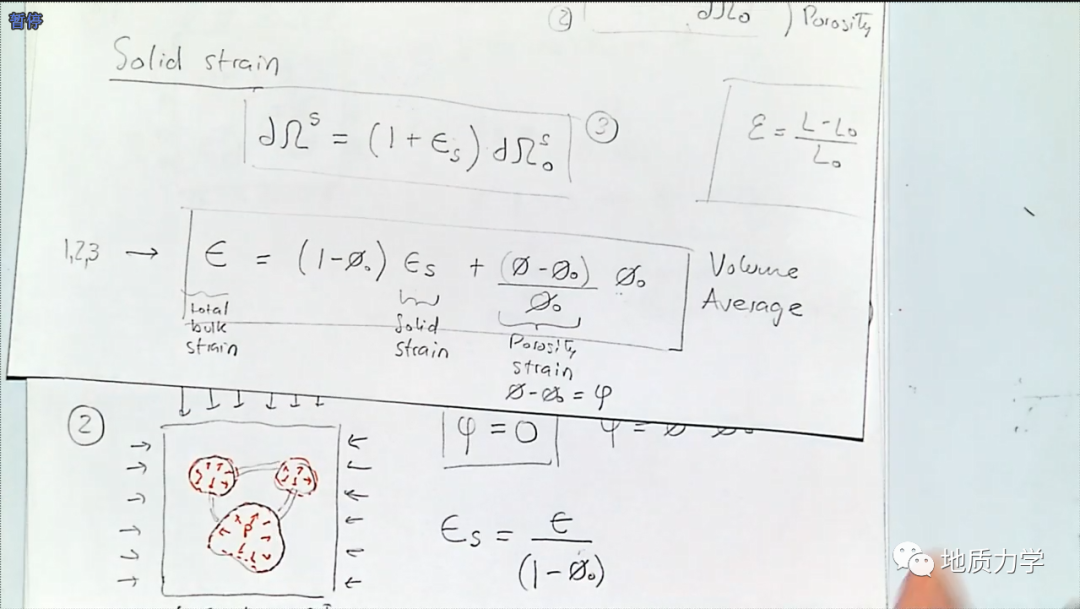 暂停
② dΩ₀ ) Porosity
Solid strain
dΩˢ = (1 + ϵₛ) dΩ₀ˢ ③
ε = (L - L₀) / L₀
1,2,3 → ϵ = (1-ø₀) ϵₛ + (ø-ø₀)/ø₀ ø₀ Volume Average
total bulk strain
Solid strain
Porosity strain
ø-ø₀ = φ
②
φ = 0
φ = ø ø₀
P
ϵₛ = ϵ / (1-ø₀)
地质力学